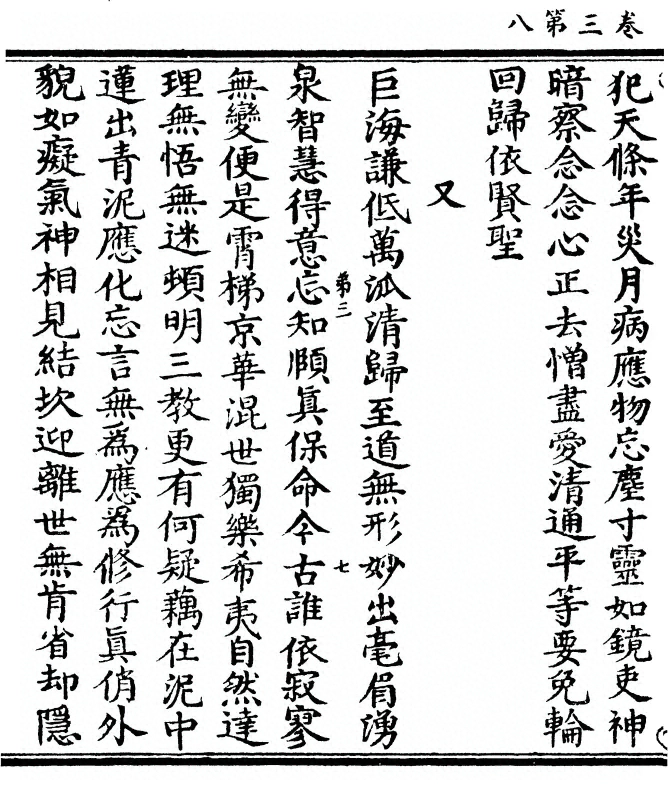 卷三第八
犯天條年災月病應物忘塵寸靈如鏡吏神
暗察念念心正去憎盡愛清通平等要免輪
回歸依賢聖
又
巨海謙低萬泒清歸至道無形妙出毫眉湧
泉智慧得意忘知順眞保命今古誰依寂寥
第三
七
無變便是霄梯京華混世獨樂希夷自然達
理無悟無迷頓明三教更有何疑藕在泥中
蓮出青泥應化忘言無爲應爲修行眞俏外
貌如癡氣神相見結坎迎離世無肯省却隱